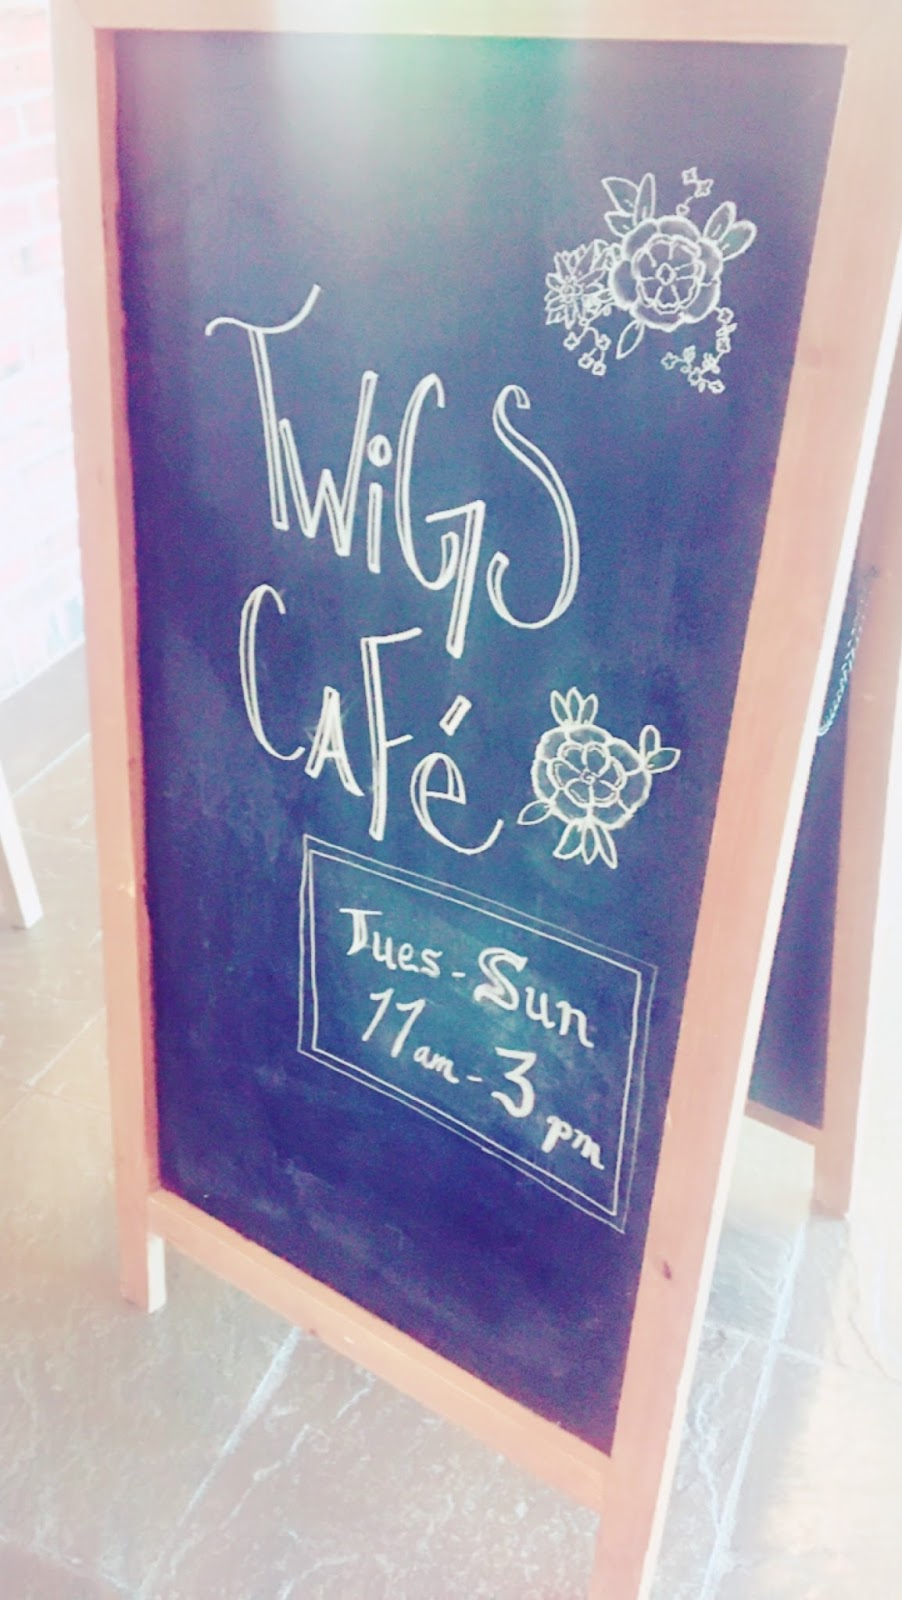 TWiGS
CAFé
Tues - Sun
11 am - 3 pm